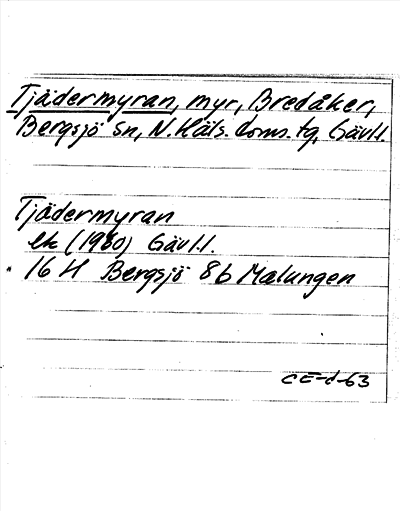 Tjädermyran, myr, Bredåker,
Bergsjö sn, N. Häls. doms. tg, Gävl.l.
Tjädermyran
ek (1960) Gävl.l.
16 H Bergsjö 8b Malungen
CE-d-63